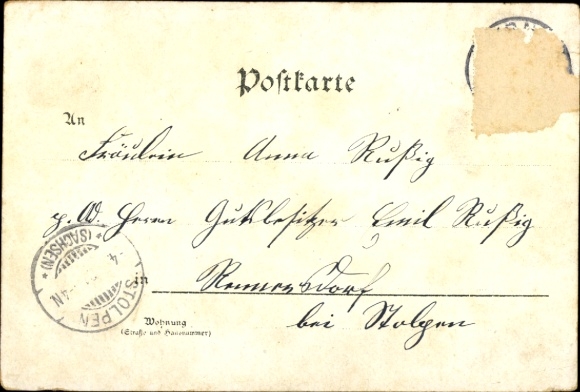 Postkarte
An
Fräulein Anna Rußig
p. Ad. Herrn Gutsbesitzer Emil Rußig
in Rennersdorf
bei Stolpen
Wohnung
(Straße und Hausnummer)
STOLPEN
* (SACHSEN) *